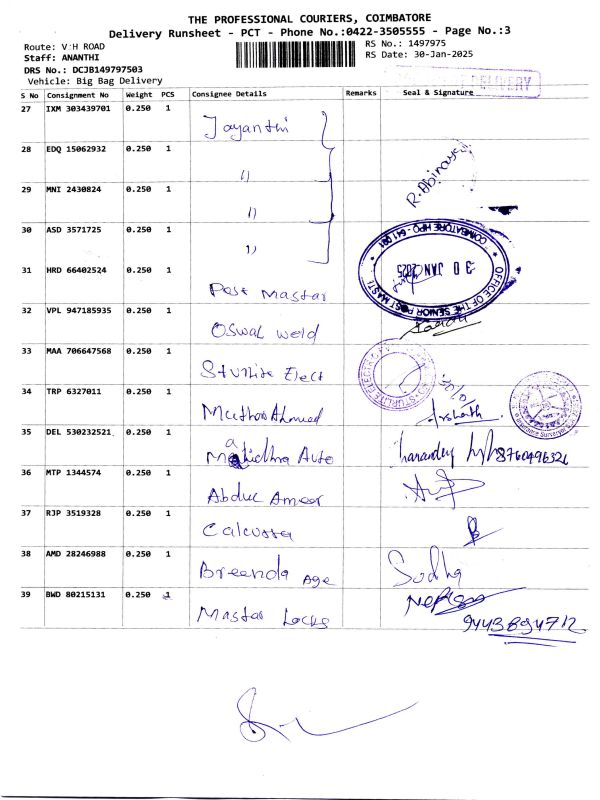 THE PROFESSIONAL COURIERS, COIMBATORE
Delivery Runsheet - PCT - Phone No.:0422-3505555 - Page No.:3
Route: V:H ROAD
RS No.: 1497975
Staff: ANANTHI
RS Date: 30-Jan-2025
DRS No.: DCJB149797503
Vehicle: Big Bag Delivery
DELIVERY
S No Consignment No Weight PCS Consignee Details Remarks Seal & Signature
27 IXM 303439701 0.250 1 Jayanthi
28 EDQ 15062932 0.250 1 "
R. Abinaya
29 MNI 2430824 0.250 1 "
30 ASD 3571725 0.250 1 "
COIMBATORE HPO - 641 001
30 JAN 2025
OFFICE OF THE SENIOR POST MAST
31 HRD 66402524 0.250 1 Post Mastar
32 VPL 947185935 0.250 1 Oswal weld
33 MAA 706647568 0.250 1 Sturlite Elect
34 TRP 6327011 0.250 1 Muthu Ahmed Arshath
35 DEL 530232521 0.250 1 Mahidhra Auto 8760496326
36 MTP 1344574 0.250 1 Abdul Ameer
37 RJP 3519328 0.250 1 Calcutta
38 AMD 28246988 0.250 1 Breenda Age Sudha
39 BWD 80215131 0.250 1 Mastar Locks
9443894712